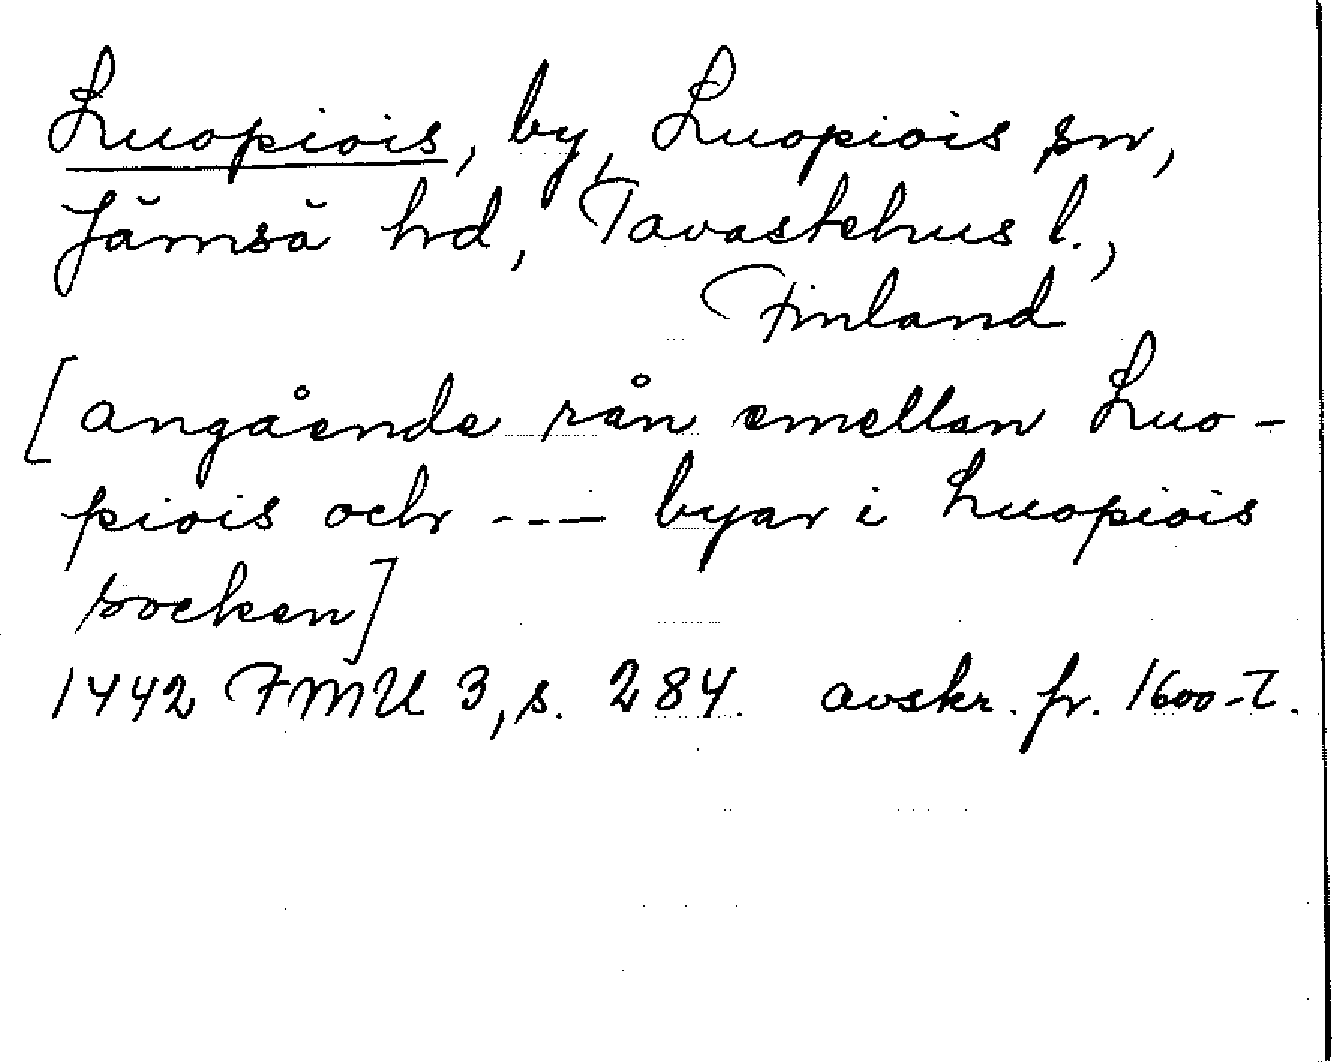 Luopiois, by, Luopiois sn,
Jämsä hd, Tavastehus l.,
Finland
[angående rån emellan Luo-
piois och --- byar i Luopiois
socken]
1442 FMU 3, s. 284. avskr. fr. 1600-t.